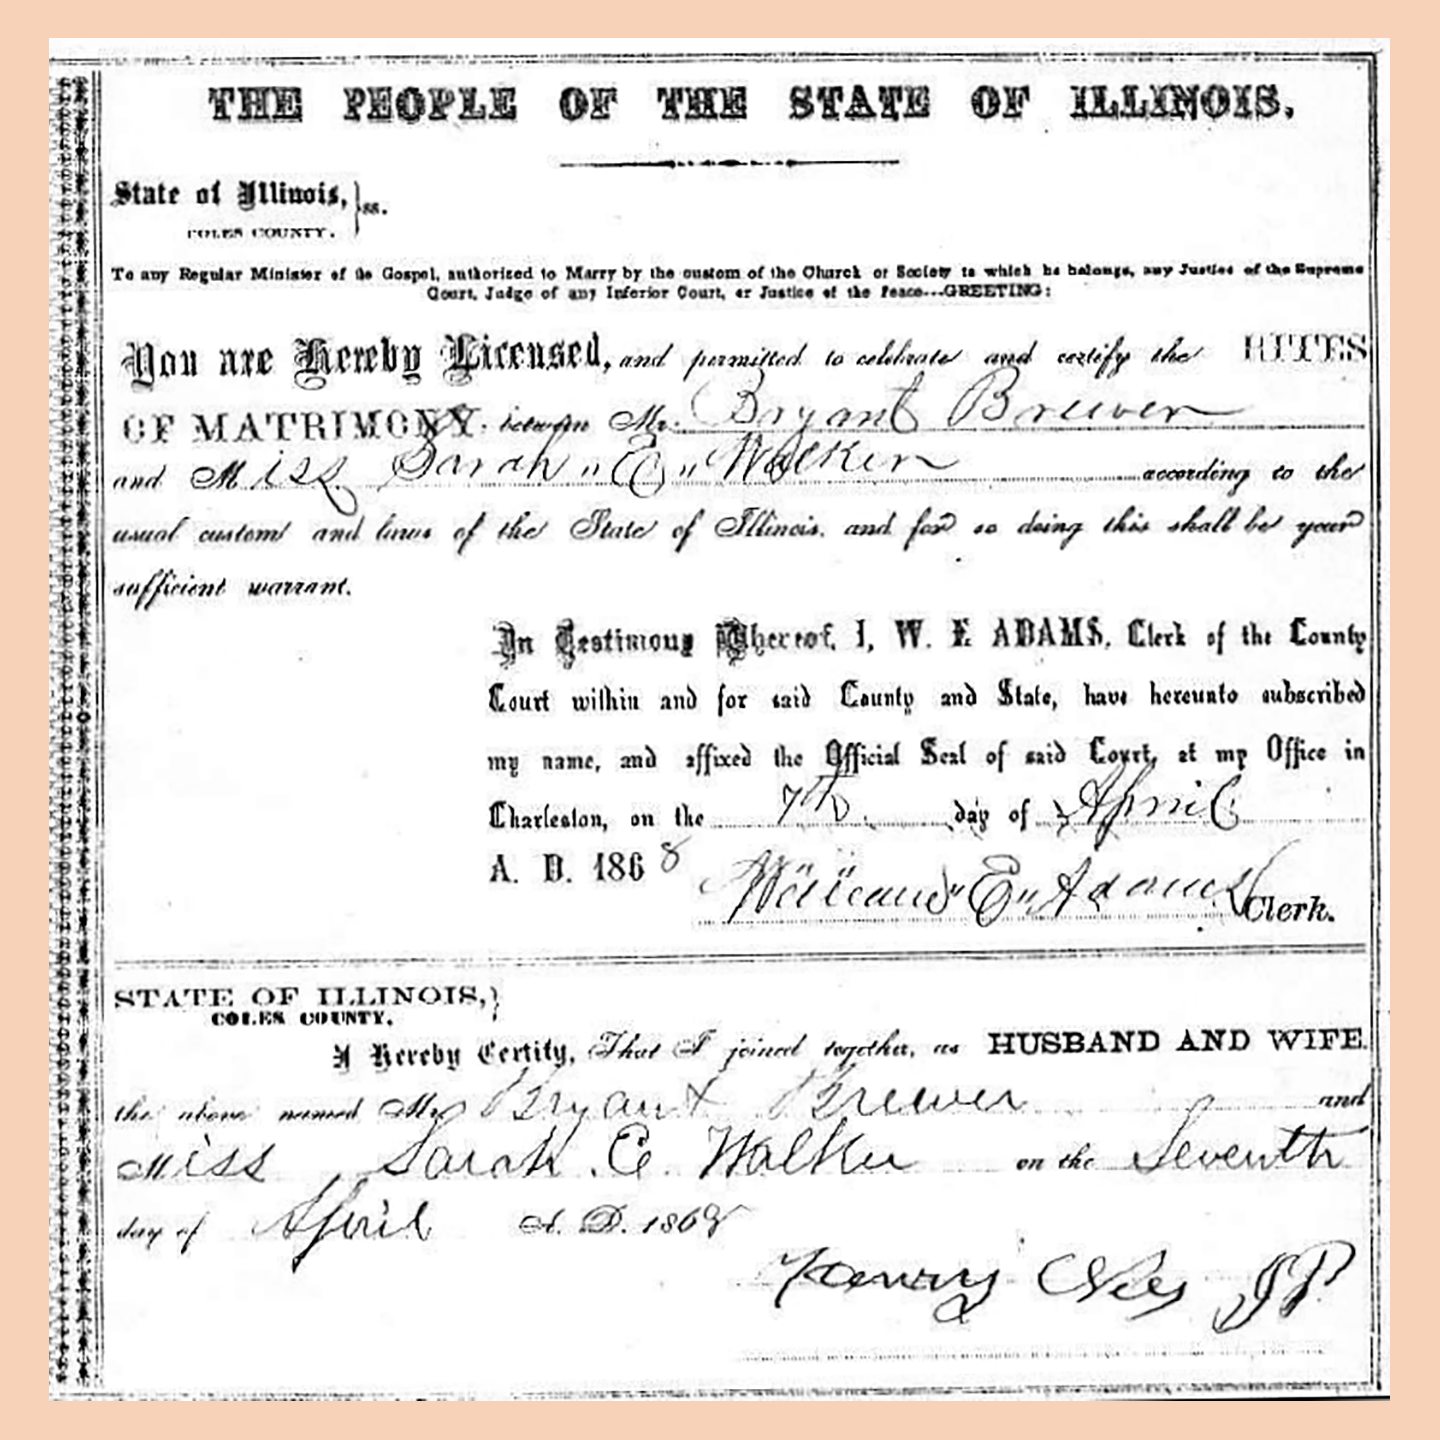 THE PEOPLE OF THE STATE OF ILLINOIS.
State of Illinois, } ss.
COLES COUNTY.
To any Regular Minister of the Gospel, authorized to Marry by the custom of the Church or Society to which he belongs, any Justice of the Supreme
Court, Judge of any Inferior Court, or Justice of the Peace---GREETING:
You are Hereby Licensed, and permitted to celebrate and certify the RITES
OF MATRIMONY between Mr. Bryant Brewer
and Miss Sarah "E" Walker according to the
usual custom and laws of the State of Illinois, and for so doing this shall be your
sufficient warrant.
In Testimony Whereof, I, W. E. ADAMS, Clerk of the County
Court within and for said County and State, have hereunto subscribed
my name, and affixed the Official Seal of said Court, at my Office in
Charleston, on the 7th day of April
A. D. 1868 William "E" Adams Clerk.
STATE OF ILLINOIS, }
COLES COUNTY.
I Hereby Certify, That I joined together, as HUSBAND AND WIFE.
the above named Mr Bryant Brewer and
Miss Sarah E. Walker on the Seventh
day of April A. D. 1868
Henry JP